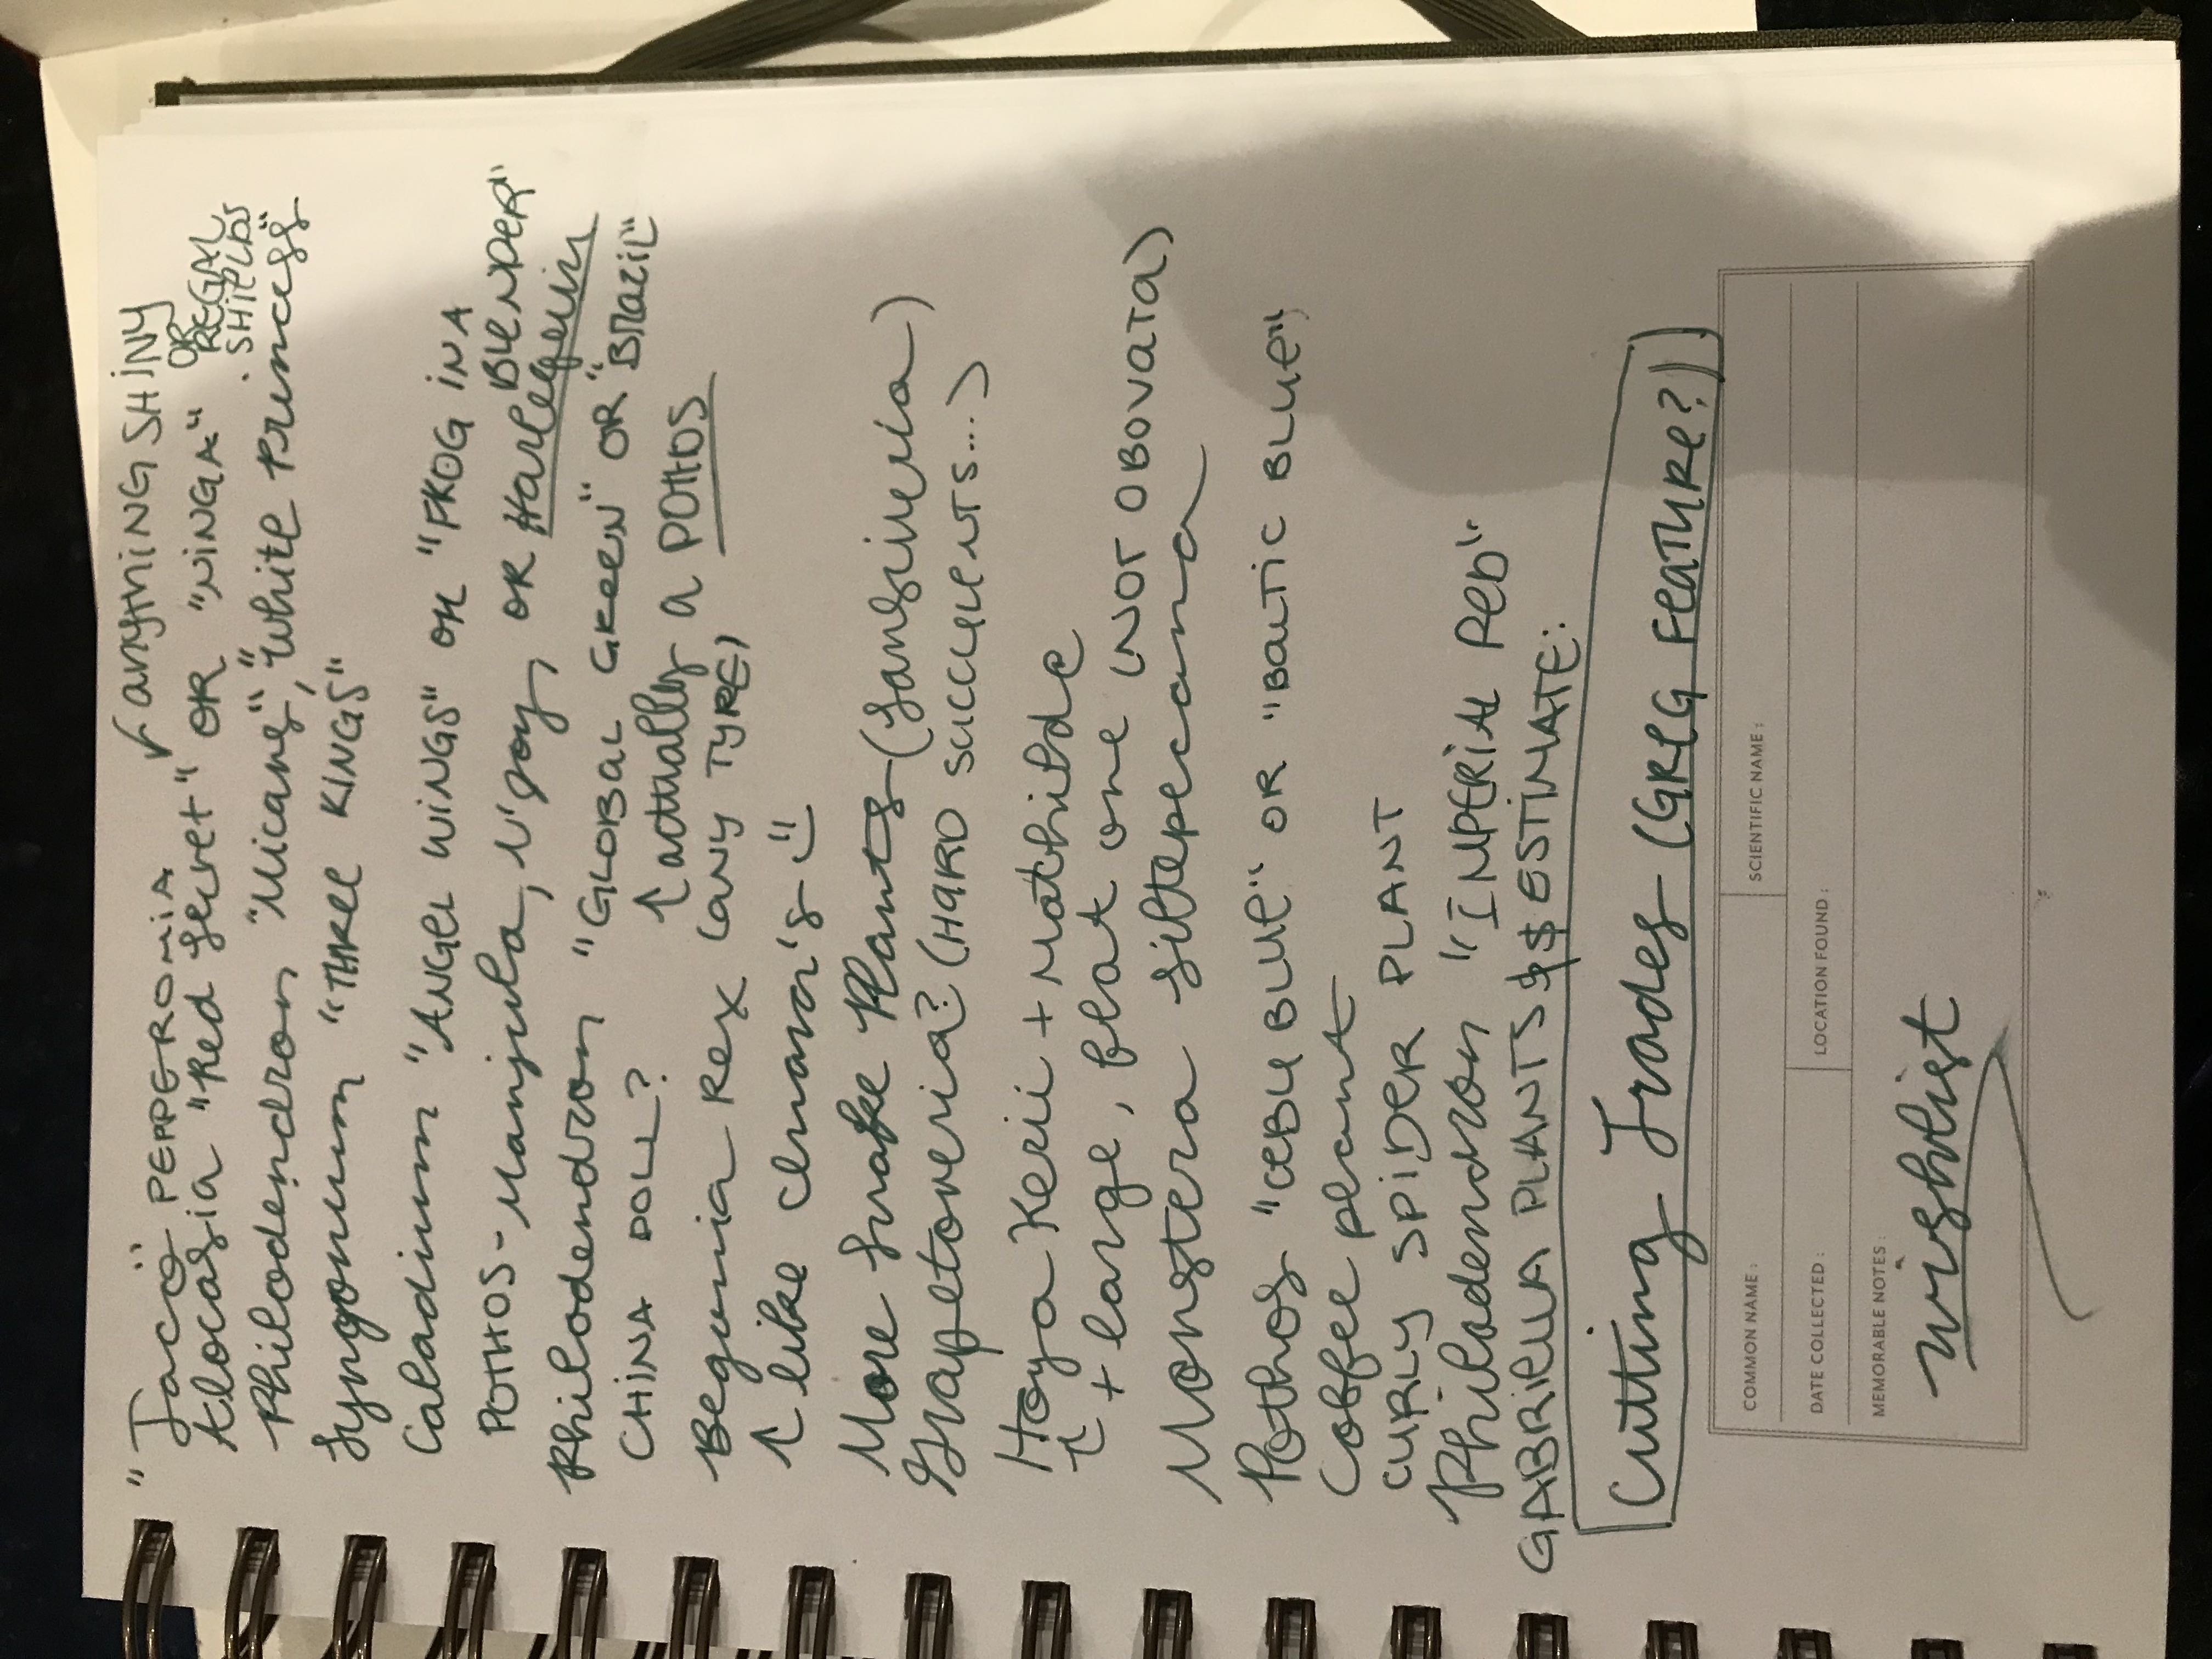 "Jacó" PEPPEROMIA ↙ anyTHING SHINY
Alocasia "Red Secret" OR "NINGA" OR REGAL SHIELDS
Philodendron "Micans", "White Princess"
Syngonium "THREE KINGS"
Caladium "ANGEL WINGS" OR "FROG IN A BLENDER"
POTHOS - Manjula, N'Joy, OR Harlequin
Philodendron "GLOBAL GREEN" OR "BRAZIL"
CHINA DOLL? ↑ actually a POTHOS
Begonia Rex (ANY TYPE)
↑ like Chmara's
More Snake Plants (Sansivieria)
Grapetoveria? (HARD SUCCULENTS...)
Hoya Kerii + Mathilde
↑ + large, flat one (NOT OBOVATA)
Monstera siltepecana
Pothos "CEBU BLUE" OR "BALTIC BLUE"
Coffee plant
CURLY SPIDER PLANT
Philodendron "IMPERIAL RED"
GABRIELLA PLANTS $$ ESTIMATE:
Cutting Trades (GREG FEATURE?)
COMMON NAME : SCIENTIFIC NAME :
DATE COLLECTED : LOCATION FOUND :
MEMORABLE NOTES :
Wishlist